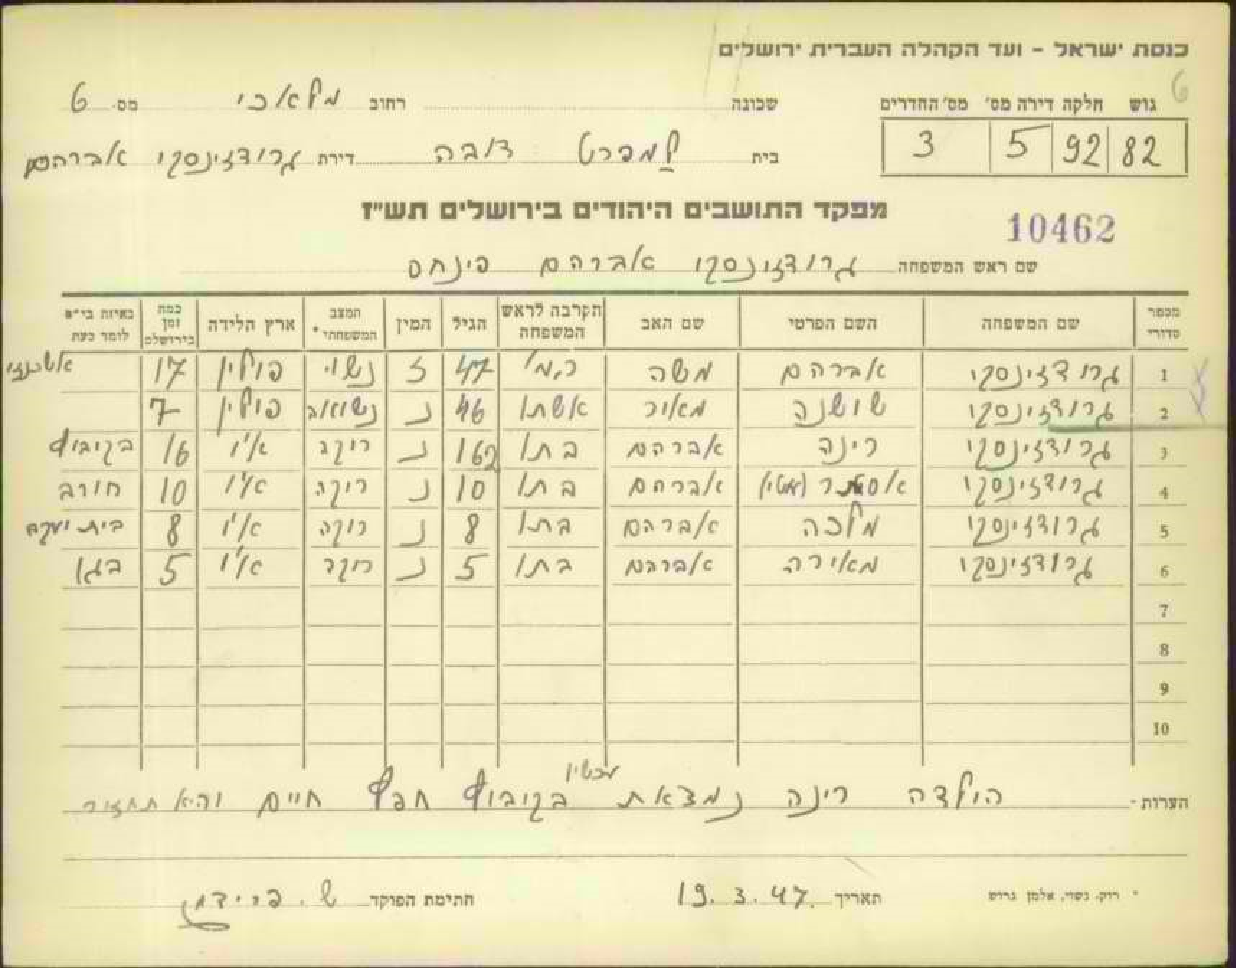 כנסת ישראל - ועד הקהלה העברית ירושלים
6
גוש חלקה דירה מס׳ מס׳ החדרים שכונה רחוב מלאכי מס. 6
82 92 5 3
בית למפרט דובה דירת גרודזינסקי אברהם
מפקד התושבים היהודים בירושלים תש"ז
10462
שם ראש המשפחה גרודזינסקי אברהם פינחס
מספר סדורי שם המשפחה השם הפרטי שם האב הקרבה לראש המשפחה הגיל המין המצב המשפחתי * ארץ הלידה כמה זמן בירושלם באיזה בי"ס לומד כעת
1 גרודזינסקי אברהם משה ר.מ׳ 47 ז נשוי פולין 17 אשכנזי
2 גרודזינסקי שושנה מאיר אשתו 46 נ נשואה פולין 7
3 גרודזינסקי רינה אברהם בתו 16 נ רוקה א"י 16 בקיבוץ
4 גרודזינסקי אסתר אברהם בתו 10 נ רוקה א"י 10 חורב
5 גרודזינסקי מלכה אברהם בתו 8 נ רוקה א"י 8 בית יעקב
6 גרודזינסקי מאירה אברהם בתו 5 נ רוקה א"י 5 בגן
7
8
9
10
עכשיו
הערות - הילדה רינה נמצאת בקיבוץ חפץ חיים והיא תחזור
* רוק, נשוי, אלמן גרוש תאריך 19.3.47 חתימת הפוקד ש. פרידמן